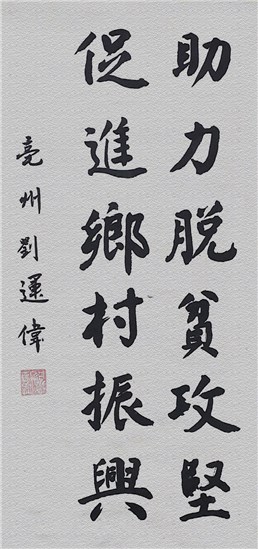 助力脱貧攻堅
促進鄉村振興
亳州劉運偉